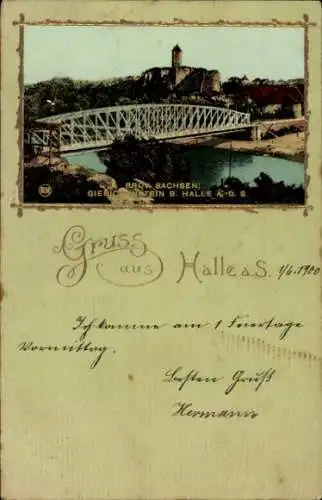 PROV. SACHSEN.
GIEBICHENSTEIN B. HALLE A. D. S.
Gruss
aus Halle a. S. 1/6. 1900
Ich komme am 1 Feiertage
Vormittag.
besten Gruß
Hermann